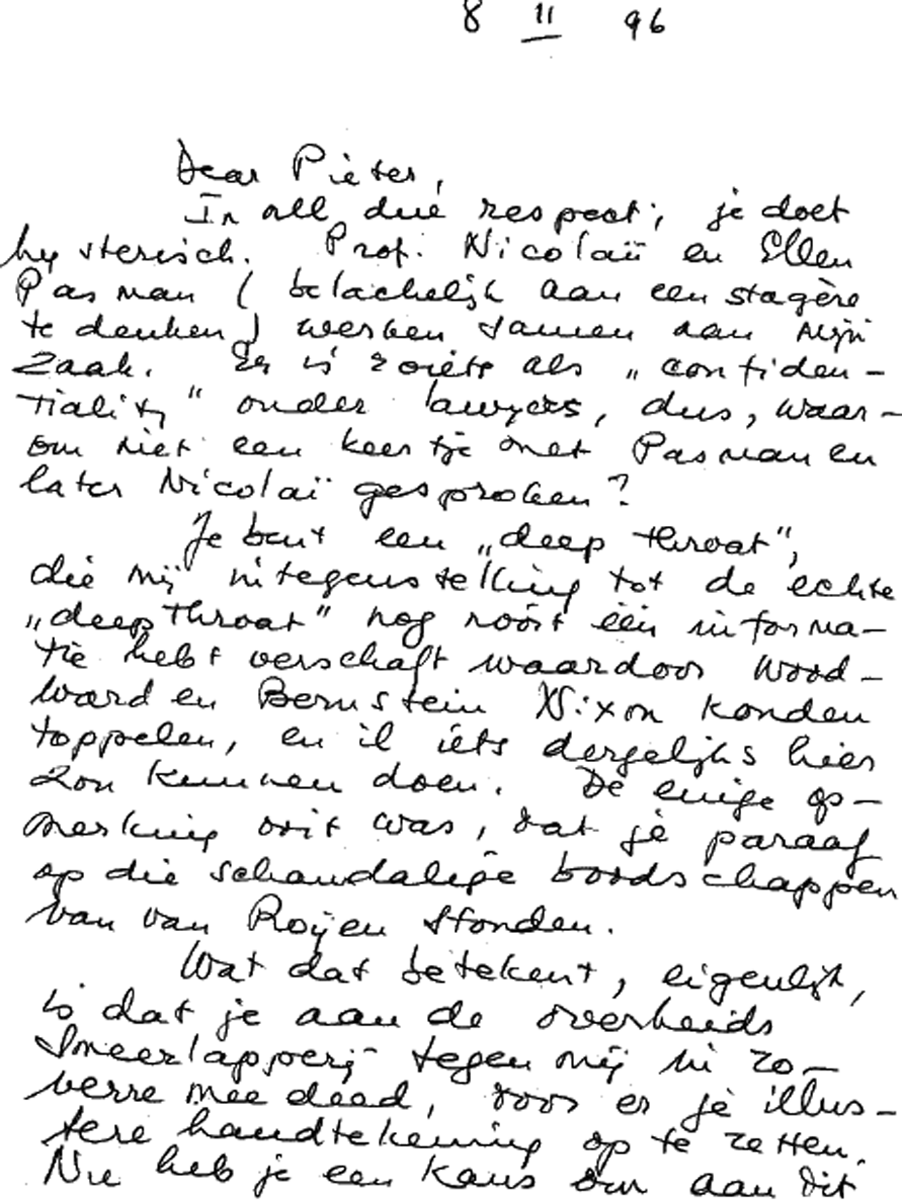 8 11 96
Dear Pieter,
In all due respect, je doet
hysterisch. Prof. Nicolaï en Ellen
Pasman (belachelijk aan een stagère
te denken) werken samen aan mijn
zaak. Er is zoiets als „confiden-
tiality" onder lawyers, dus, waar-
om niet een keertje met Pasman en
later Nicolaï gesproken?
Je bent een „deep throat",
die mij in tegenstelling tot de echte
„deep throat" nog nóóit één informa-
tie hebt verschaft waardoor Wood-
ward en Bernstein Nixon konden
toppelen, en ik iets dergelijks hier
zou kunnen doen. De enige op-
merking ooit was, dat je paraaf
op die schandalige boodschappen
van van Roijen stonden.
Wat dat betekent, eigenlijk,
is dat je aan de overheids
smeerlapperij tegen mij in zo-
verre mee deed, door er je illus-
tere handtekening op te zetten.
Nu heb je een kans om aan dit